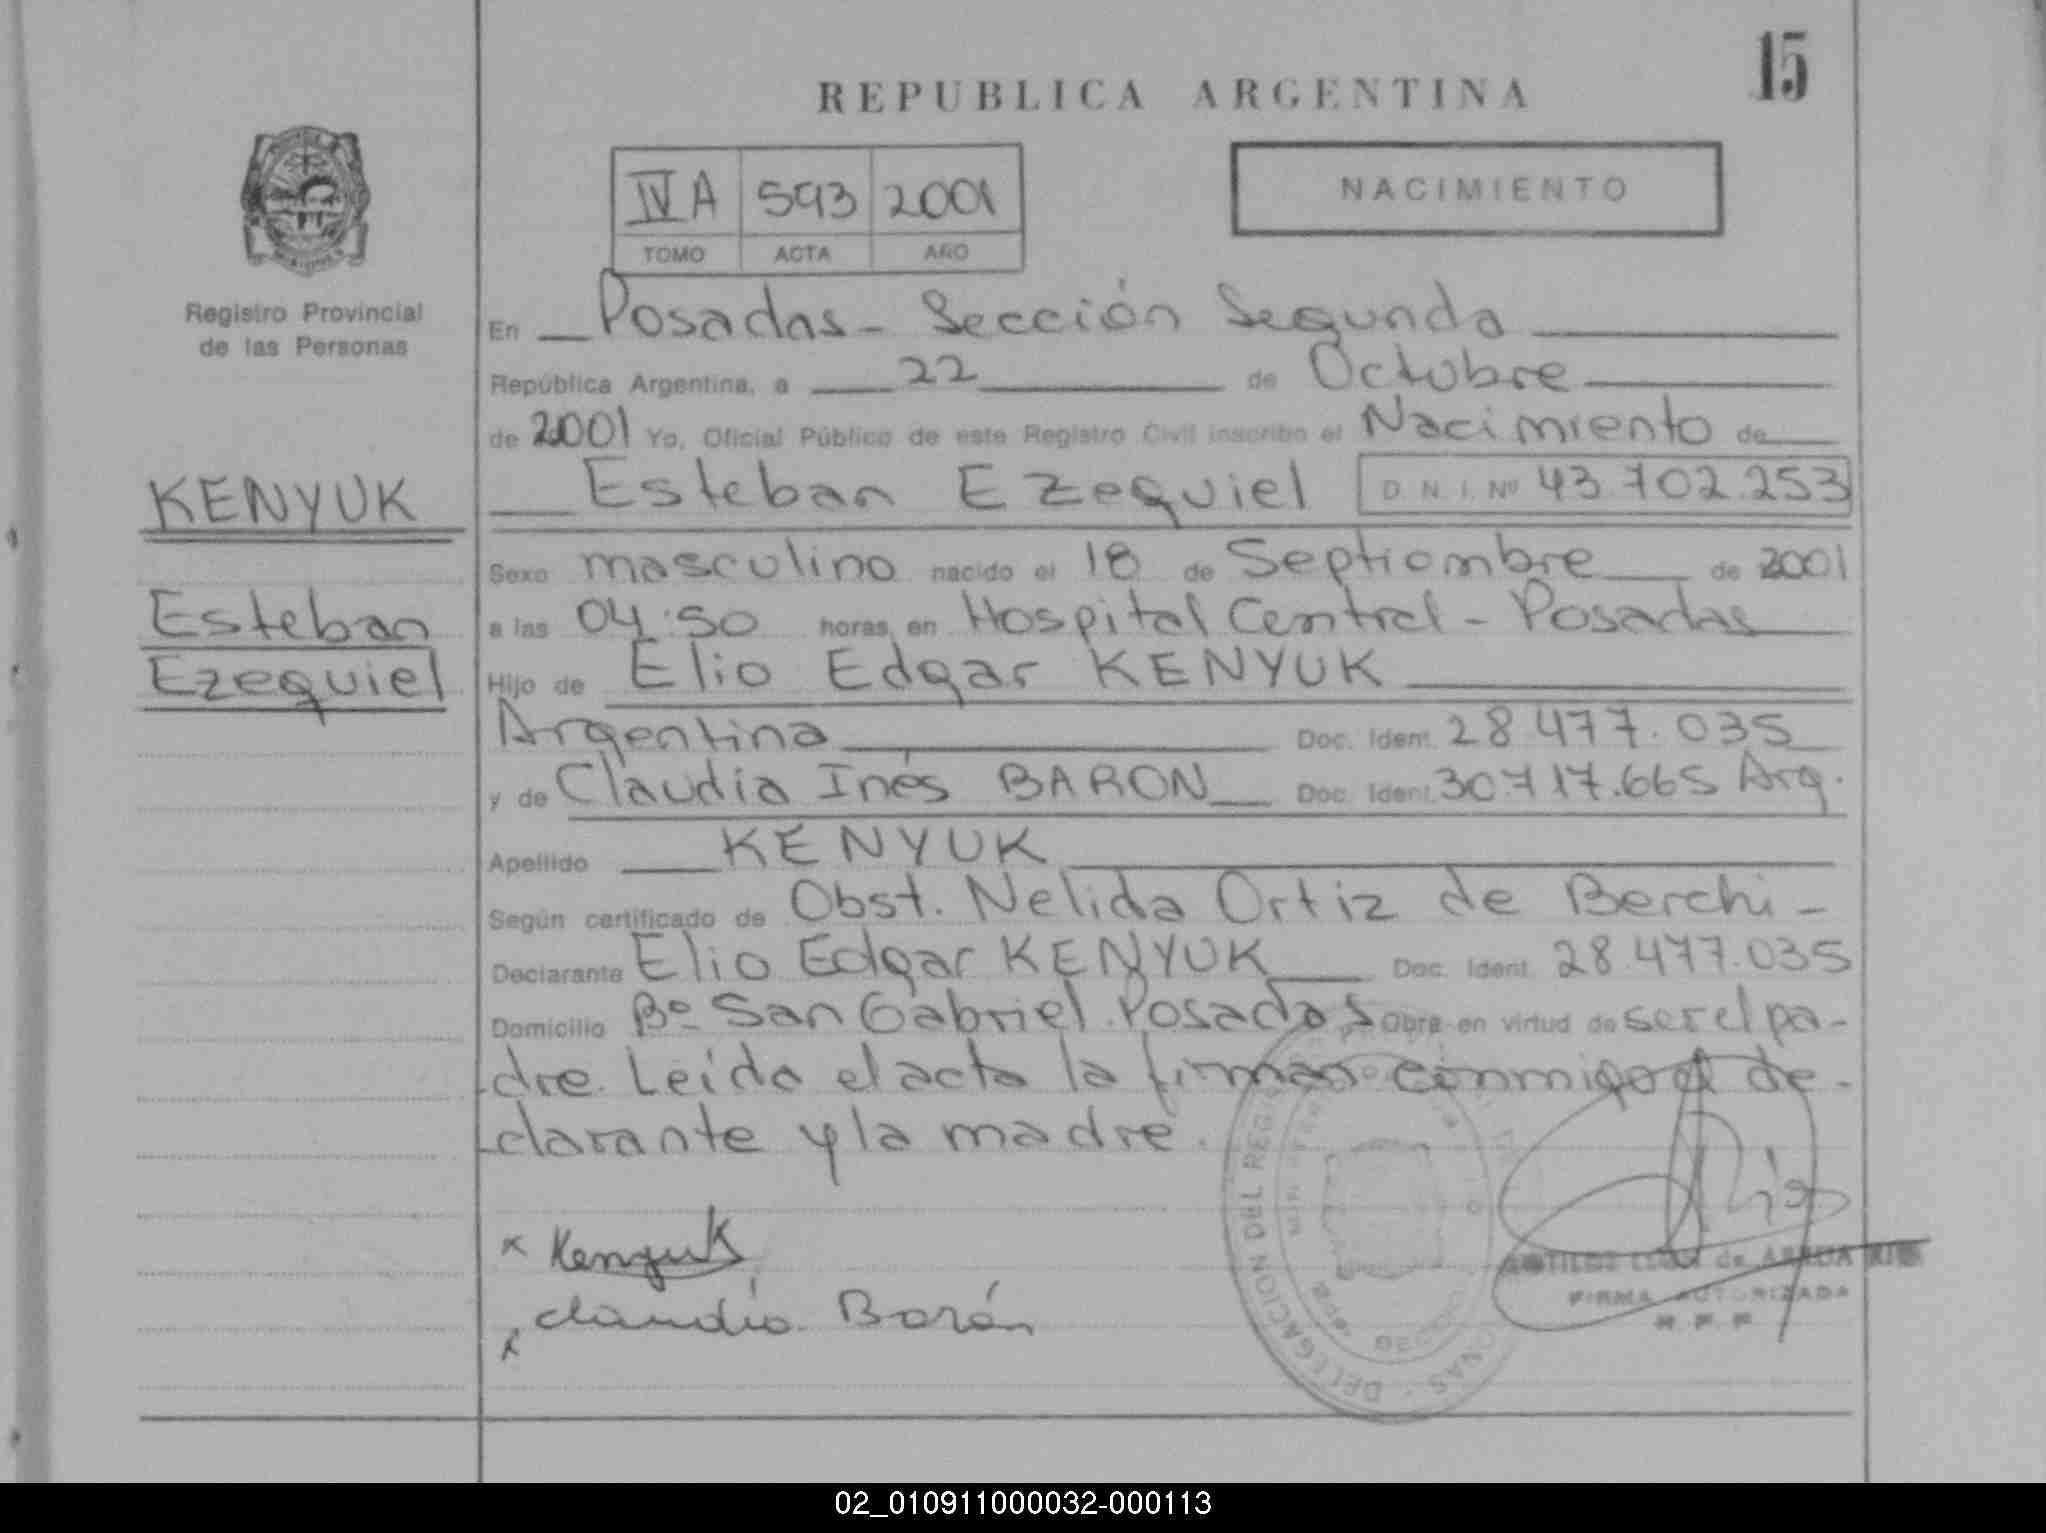 15
REPUBLICA ARGENTINA
NACIMIENTO
IV A 593 2001
TOMO ACTA AÑO
Registro Provincial
de las Personas
KENYUK
Esteban
Ezequiel
En Posadas - Sección Segunda
República Argentina, a 22 de Octubre
de 2001 Yo, Oficial Público de este Registro Civil inscribo el Nacimiento de
Esteban Ezequiel D. N. I. Nº 43.702.253
Sexo masculino nacido el 18 de Septiembre de 2001
a las 04:50 horas, en Hospital Central - Posadas
Hijo de Elio Edgar KENYUK
Argentina Doc. Ident. 28.477.035
y de Claudia Inés BARON Doc. Ident. 30.717.665 Arg.
Apellido KENYUK
Según certificado de Obst. Nelida Ortiz de Berchi -
Declarante Elio Edgar KENYUK Doc. Ident. 28.477.035
Domicilio Bº San Gabriel. Posadas Obra en virtud de ser el pa-
dre. Leída el acta la firman conmigo el de-
clarante y la madre.
x Kenyuk
x Claudia Barón
DELEGACION DEL REGIS
de ARRUA
FIRMA AUTORIZADA
02_010911000032-000113